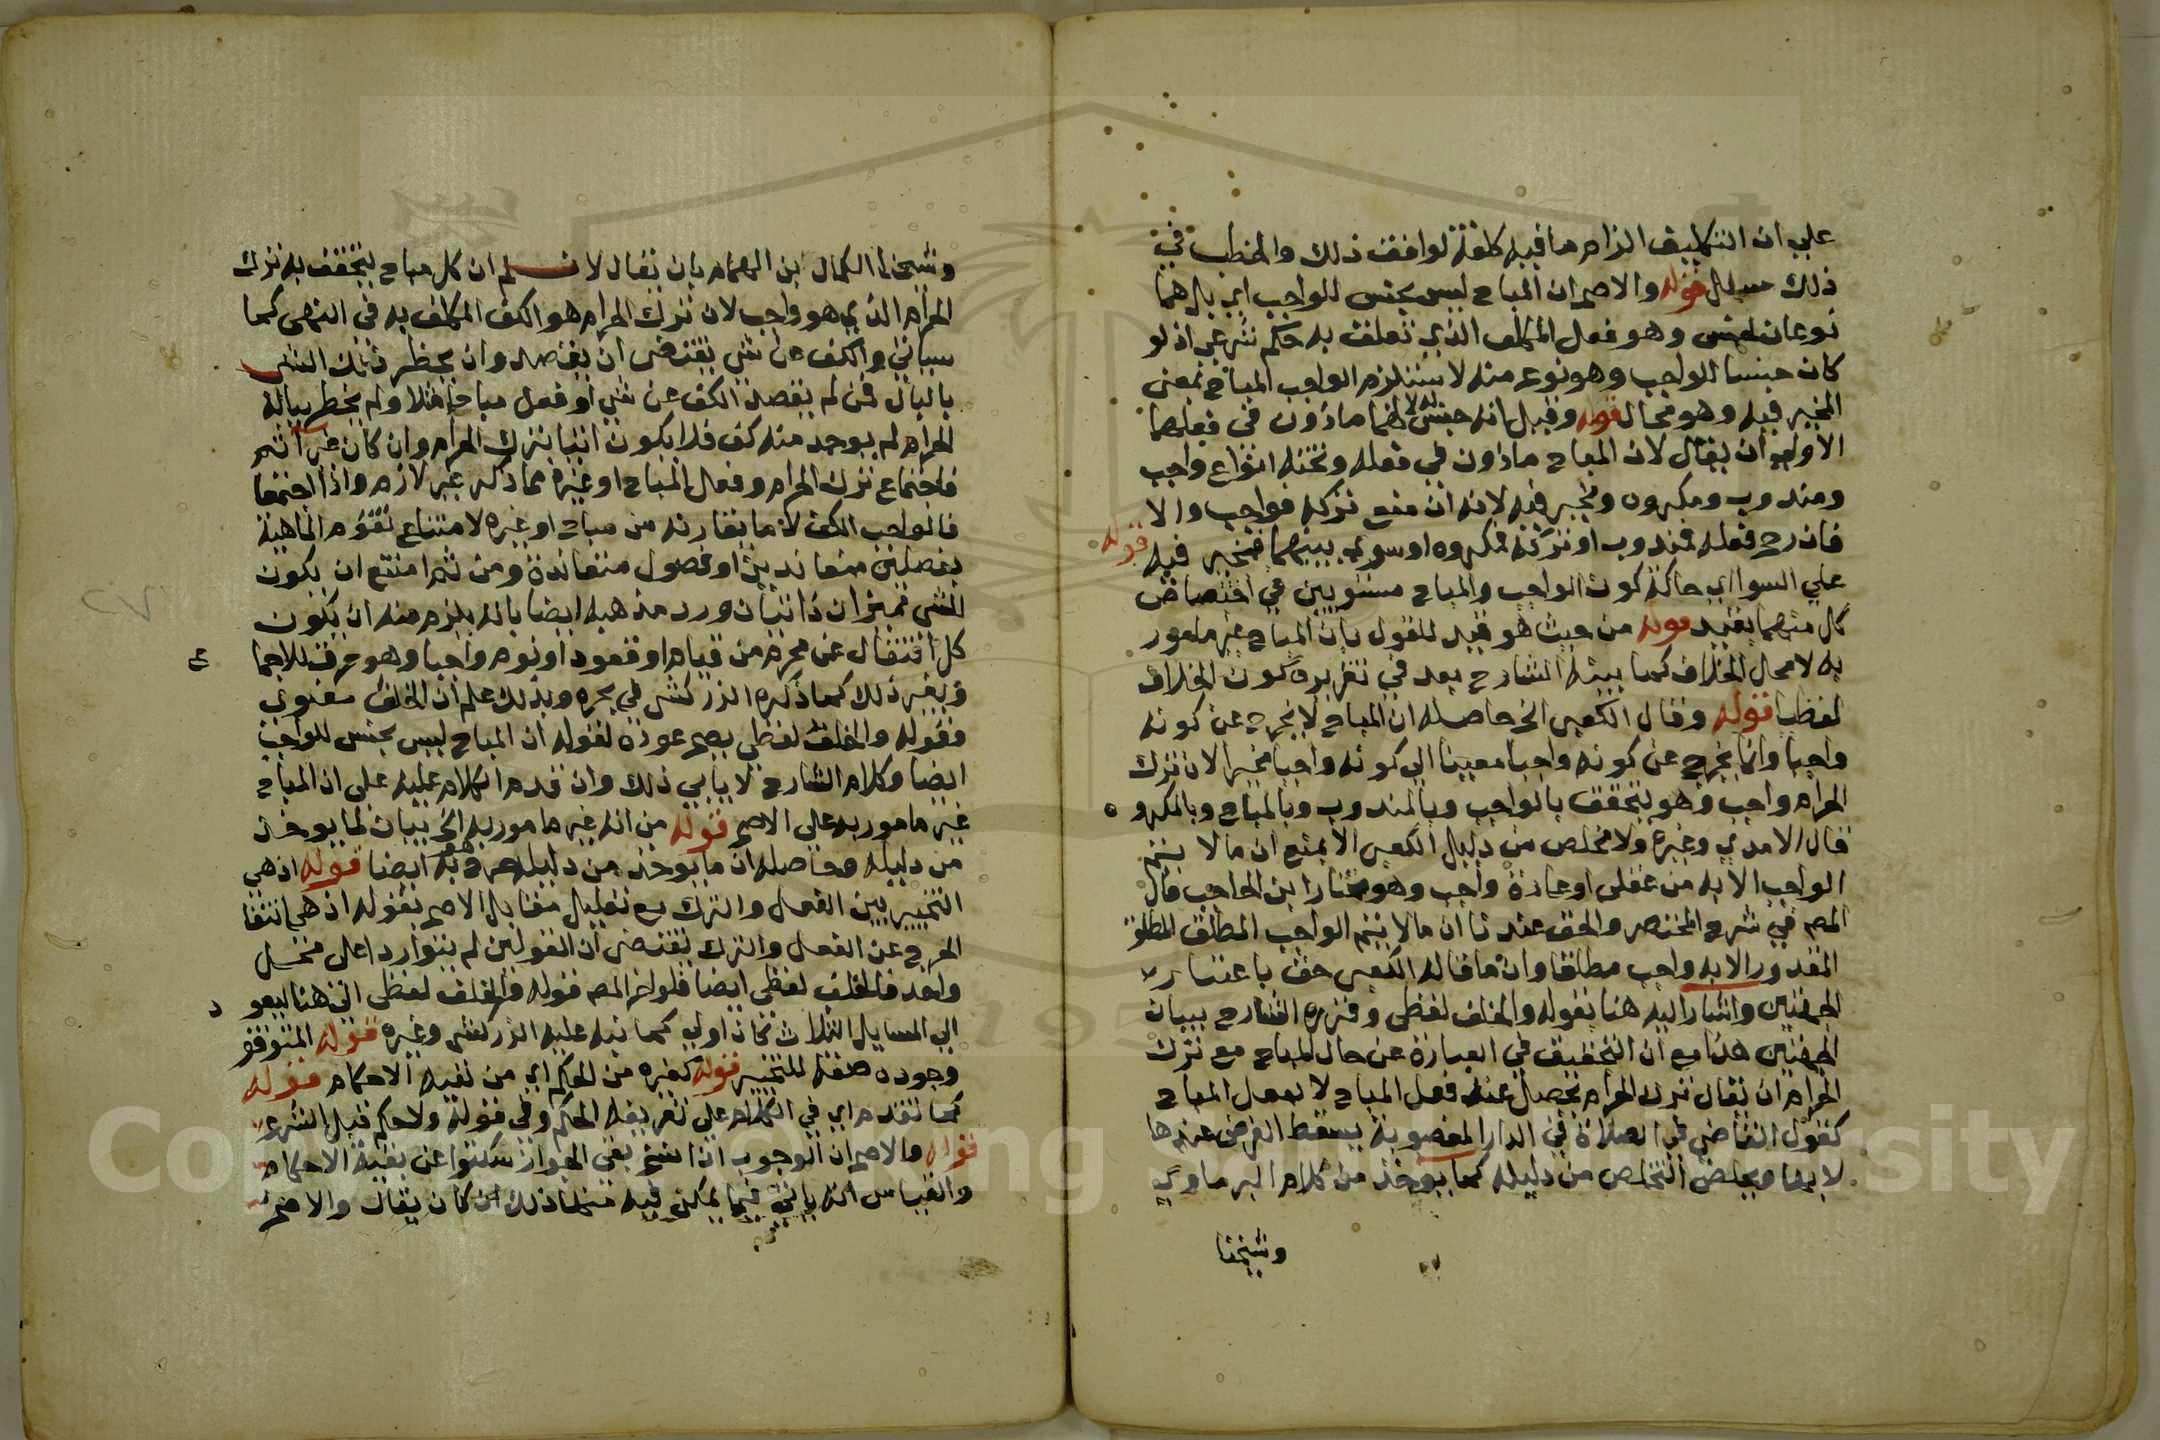 علي ان التكليف الزام ما فيه كلفة لوافقت ذلك والخطب في
ذلك سهل قوله والاصح ان المباح ليس بجنس للواجب اي بل هما
نوعان لجنس وهو فعل المكلف الذي تعلق به حكم شرعي اذ لو
كان جنسا للواجب وهو نوع منه لاستلزم الواجب المباح بمعني
المخير فيه وهو محال قوله وقيل انه جنس له لانهما ماذون في فعلهما
الاولي ان يقال لان المباح ماذون في فعله وتحته انواع واجب
ومندوب ومكروه ومخير فيه لانه ان منع تركه فواجب والا
فان رجح فعله فمندوب او تركه فمكروه او سوي بينهما فمخير فيه قوله
علي السوا اي حالة كون الواجب والمباح مستويين في اختصاص
كل منهما بقيد قوله من حيث هو قيد للقول بان المباح غير مامور
به لا محال الخلاف كما بينه الشارح بعد في تقريره كون الخلاف
لفظيا قوله وقال الكعبي الخ حاصله ان المباح لا يخرج عن كونه
واجبا وانما يخرج عن كونه واجبا معينا الي كونه واجبا مخيرا لان ترك
الحرام واجب وهو يتحقق بالواجب وبالمندوب وبالمباح وبالمكروه
قال الامدي وغيره ولا مخلص من دليل الكعبي الا بمنع ان ما لا يتم
الواجب الا به من عقلي او عادة واجب وهو مختار ابن الحاجب قال
المص في شرح المختصر والحق عندنا ان ما لا يتم الواجب المطلق المطلق
المقدور الا به واجب مطلقا وان ما قاله الكعبي حق باعتبار
الجهتين واشار اليه هنا بقوله والخلف لفظي وقرره الشارح ببيان
الجهتين هذا مع ان التحقيق في العبارة عن حال المباح مع ترك
الحرام ان يقال ترك الحرام يحصل عند فعل المباح لا بفعل المباح
كقول القاضي في الصلاة في الدار المغصوبة يسقط الفرض عندها
لا بها ويخلص التخلص من دليله كما يوخذ من كلام البرماوي
وشيخنا
وشيخنا الكمال ابن الهمام بان يقال لا نسلم ان كل مباح يتحقق به ترك
الحرام الذي هو واجب لان ترك الحرام هو الكف المكلف به في النهي كما
سياتي والكف عن شي يقتضي ان يقصد وان يخطر ذلك الشي
بالبال فمن لم يقصد الكف عن شي او فعل مباحا مثلا ولم يخطر بباله
الحرام لم يوجد منه كف فلا يكون اتيا بترك الحرام وان كان غير اثم
فاجتماع ترك الحرام وفعل المباح او غيره مما ذكر غير لازم واذا اجتمعا
فالواجب الكف لا ما يقارنه من مباح او غيره لامتناع تقوم الماهية
بفصلين متعاندين او فصول متعاندة ومن ثم امتنع ان يكون
للشي مميزان ذاتيان ورد مذهبه ايضا بانه يلزم منه ان يكون
كل انتقال عن محرم من قيام او قعود او نوم واجبا وهو خرق للاجماع
وبغير ذلك كما ذكره الزركشي في بحره وبذلك علم ان الخلف معنوي
فقوله والخلف لفظي يصح عوده لقوله ان المباح ليس بجنس للواجب
ايضا وكلام الشارح لا يابي ذلك وان قدم الكلام عليه علي ان المباح
غير مامور به علي الاصح قوله من انه غير مامور به الخ بيان لما يوخذ
من دليله وحاصله ان ما يوخذ من دليله صرح به ايضا قوله اذ هي
التخيير بين الفعل والترك مع تعليل مقابل الاصح بقوله اذ هي انتفا
الحرج عن الفعل والترك يقتضي ان القولين لم يتواردا علي محل
واحد فالخلف لفظي ايضا فلو اخر المص قوله والخلف لفظي الي هنا ليعود
الي المسايل الثلاث كان اولي كما نبه عليه الزركشي وغيره قوله المتوقف
وجوده صفة للتخيير قوله كغيره من الحكم اي من بقية الاحكام قوله
كما تقدم اي في الكلام علي تعريف الحكم وفي قوله ولا حكم قبل الشرع
قوله والاصح ان الوجوب اذا نسخ بقي الجواز سكتوا عن بقية الاحكام
والقياس انه ياتي فيما يمكن فيه منها ذلك ان كان يقال والاصح